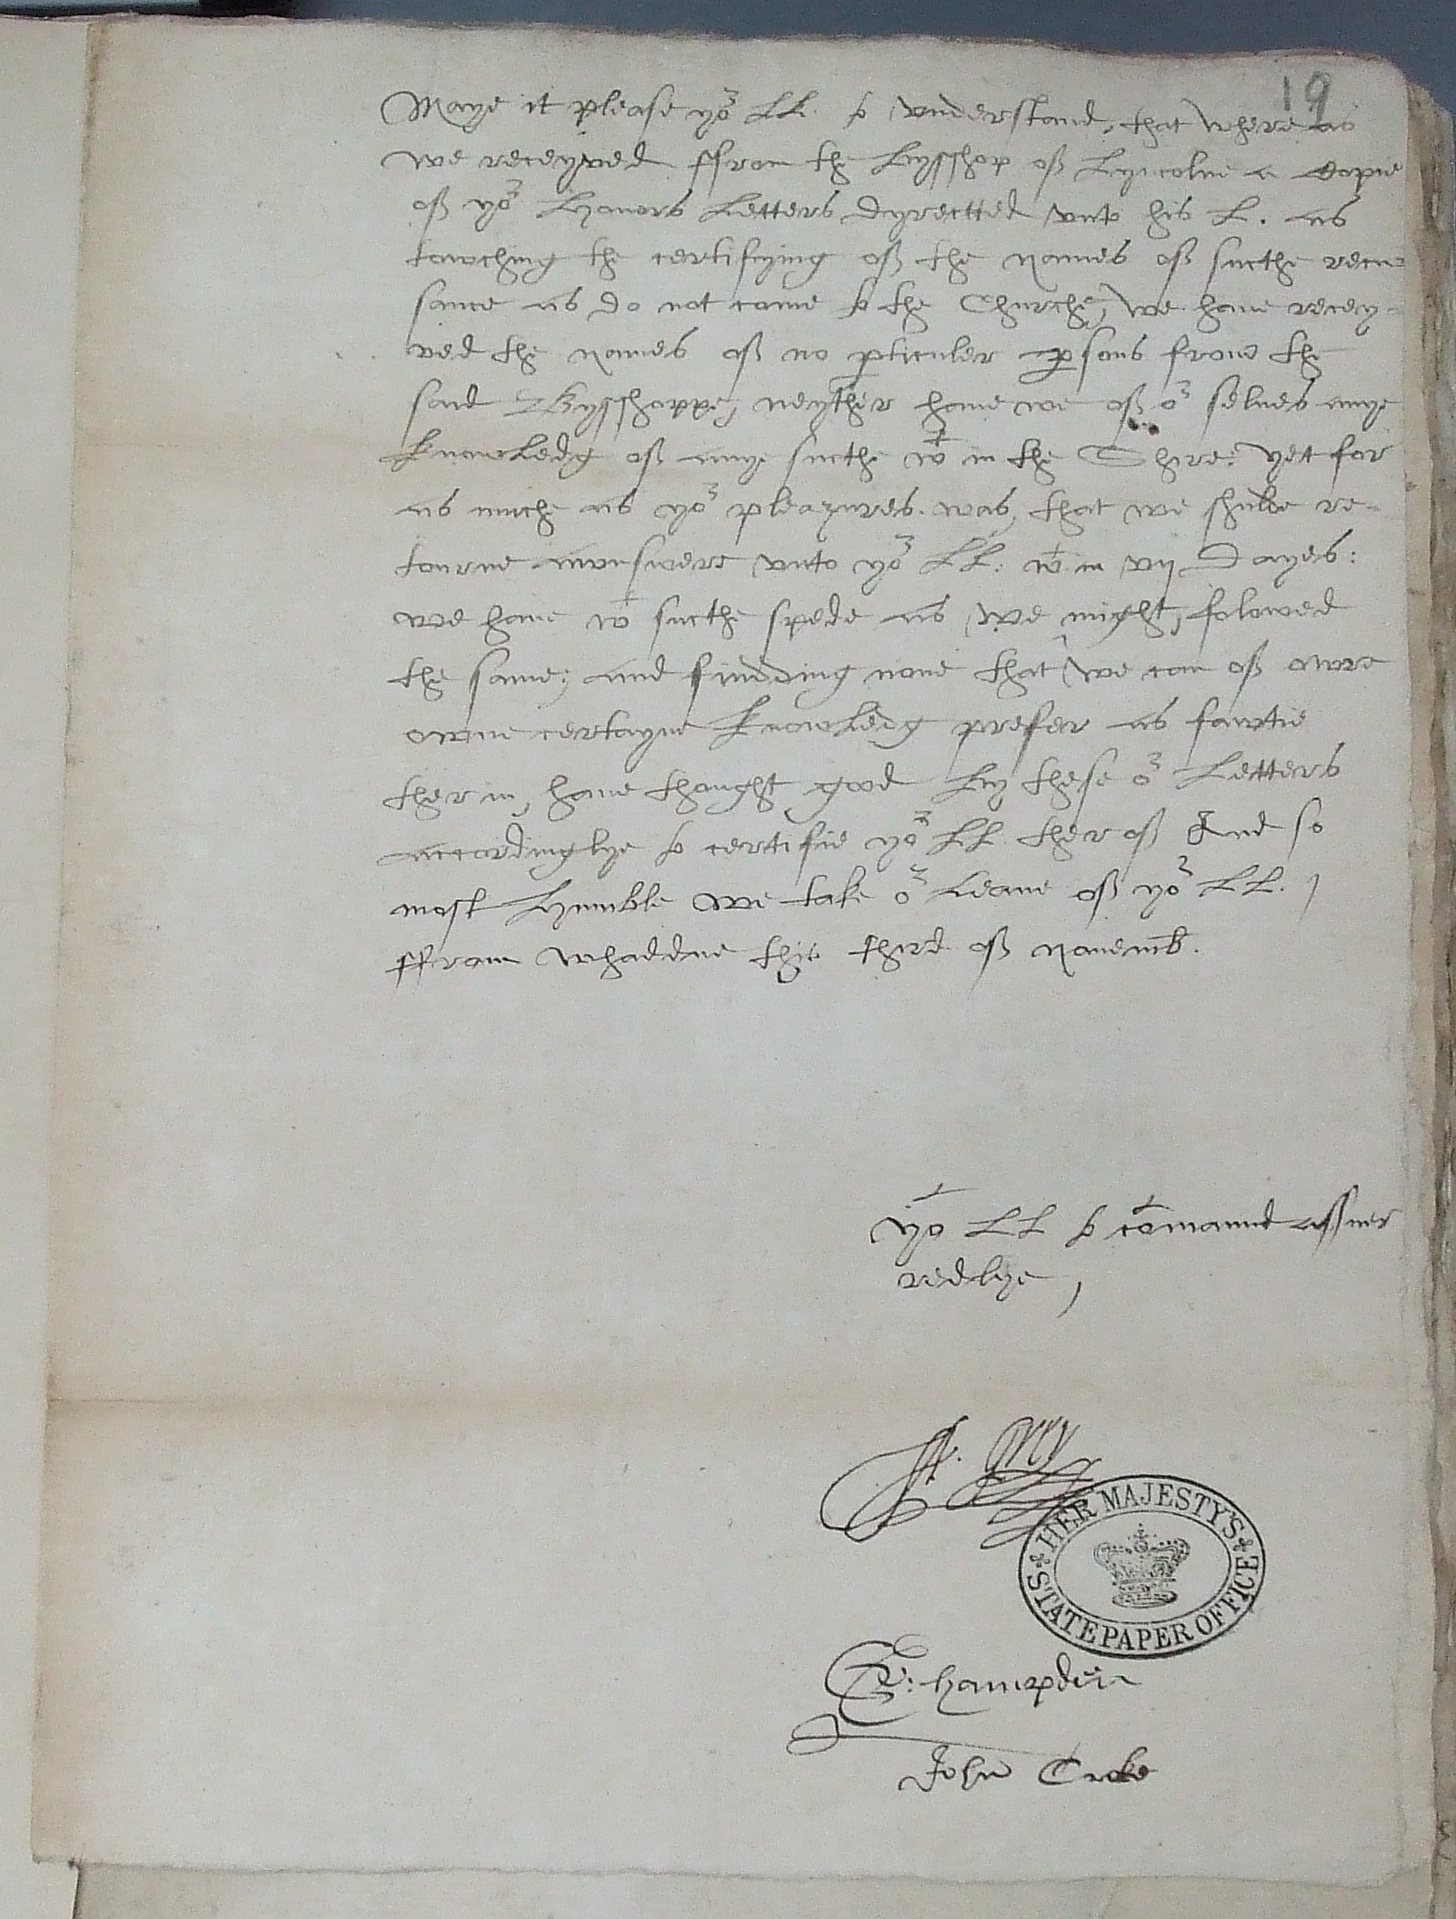 19
Maye it please yor LL. to vnderstand, that where as
we receyved ffrom the Bysshop off Lyncolne a Copie
off yor Honors Letters dyrectted vnto his L. as
towching the certifying off the names off suche recu=
sance as do not come to the Churche, we haue recey=
ved the names off no perticuler persons frome the
said Bysshoppe, neyther haue we off or selues anye
knowledg off anye suche wt in the Shire: yet for
as muche as yor pleazures was, that we shulde re=
tourne aunswere vnto yor LL: wt in vij Dayes:
we haue wt suche spede as we might, folowed
the same; and findding none that we can off owre
owne certayne knowledg prefer as fawtie
ther in, haue thought good by these or Letters
accordinglye to certifie yor LL ther off And so
most humble we take or Leaue off yor LL.
ffrom Whaddne this third off Nouemb.
yor LL to comaund assuer
redlye,
A. Grey
HER MAJESTY'S
STATE PAPER OFFICE
G: hampden
John Croke